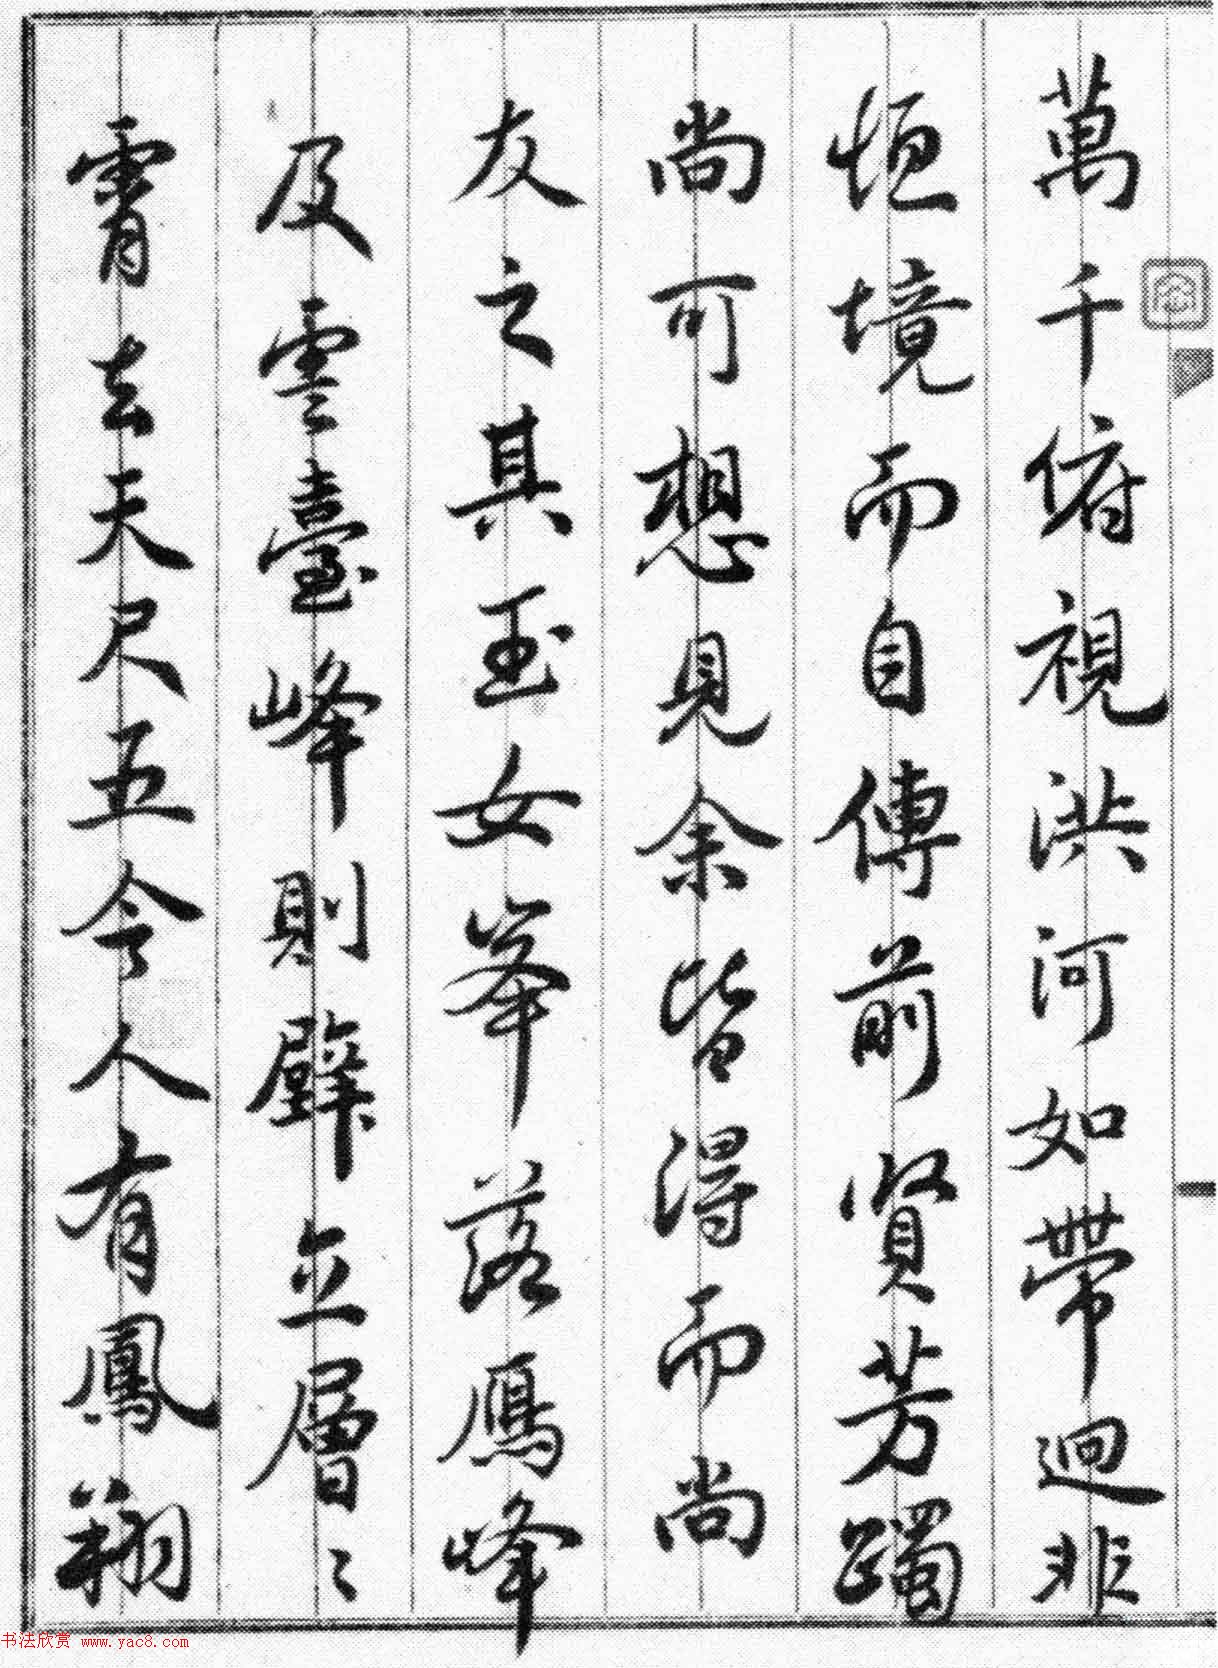 萬千俯視洪河如帶迥非
恒境而自傳前賢芳躅
尚可想見余皆得而尚
友之其玉女峯落鴈峰
及雲臺峰則壁立層〻
霄去天尺五令人有鳳翔
书法欣赏 www.yac8.com